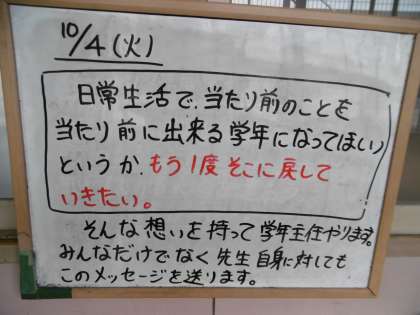 10/4(火)
日常生活で、当たり前のことを
当たり前に出来る学年になってほしい
というか、もう1度そこに戻して
いきたい。
そんな想いを持って学年主任やります。
みんなだけでなく先生自身に対しても
このメッセージを送ります。